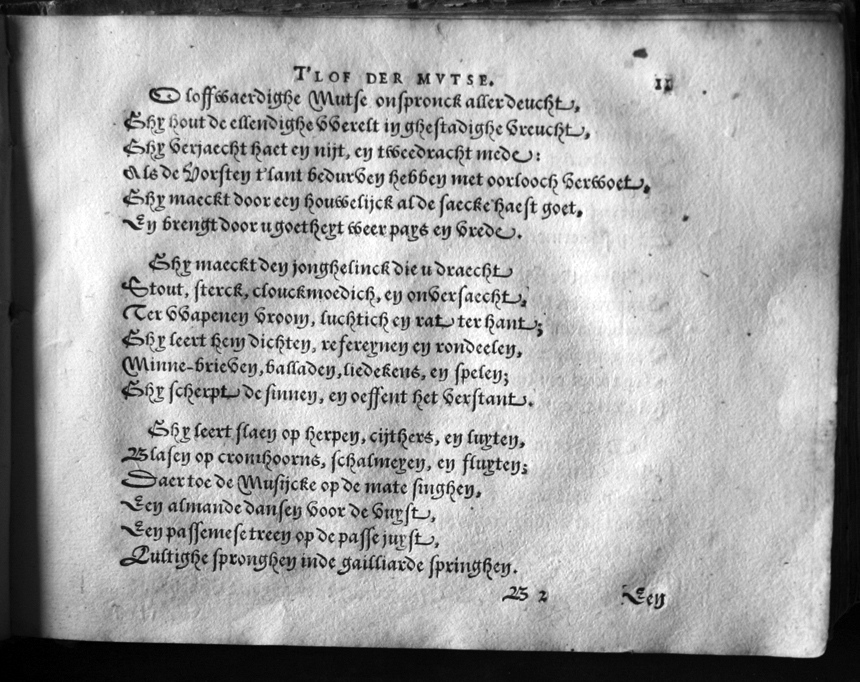 T'LOF DER MVTSE. 11
O loffwaerdighe Mutse onspronck aller deucht,
Ghy hout de ellendighe VVerelt in ghestadighe vreucht,
Ghy verjaecht haet en nijt, en tweedracht mede:
Als de Vorsten t'lant bedurven hebben met oorlooch verwoet,
Ghy maeckt door een houwelijck al de saecke haest goet,
En brengt door u goetheyt weer pays en vrede.
Ghy maeckt den jonghelinck die u draecht
Stout, sterck, clouckmoedich, en onversaecht,
Ter VVapenen vroom, luchtich en rat ter hant;
Ghy leert hem dichten, refereynen en rondeelen,
Minne-brieven, balladen, liedekens, en spelen;
Ghy scherpt de sinnen, en oeffent het verstant.
Ghy leert slaen op herpen, cijthers, en luyten,
Blasen op cromhoorns, schalmeyen, en fluyten;
Daer toe de Musijcke op de mate singhen,
Een almande dansen voor de vuyst,
Een passemese treen op de passe juyst,
Lustighe spronghen inde gailliarde springhen.
B 2 Een